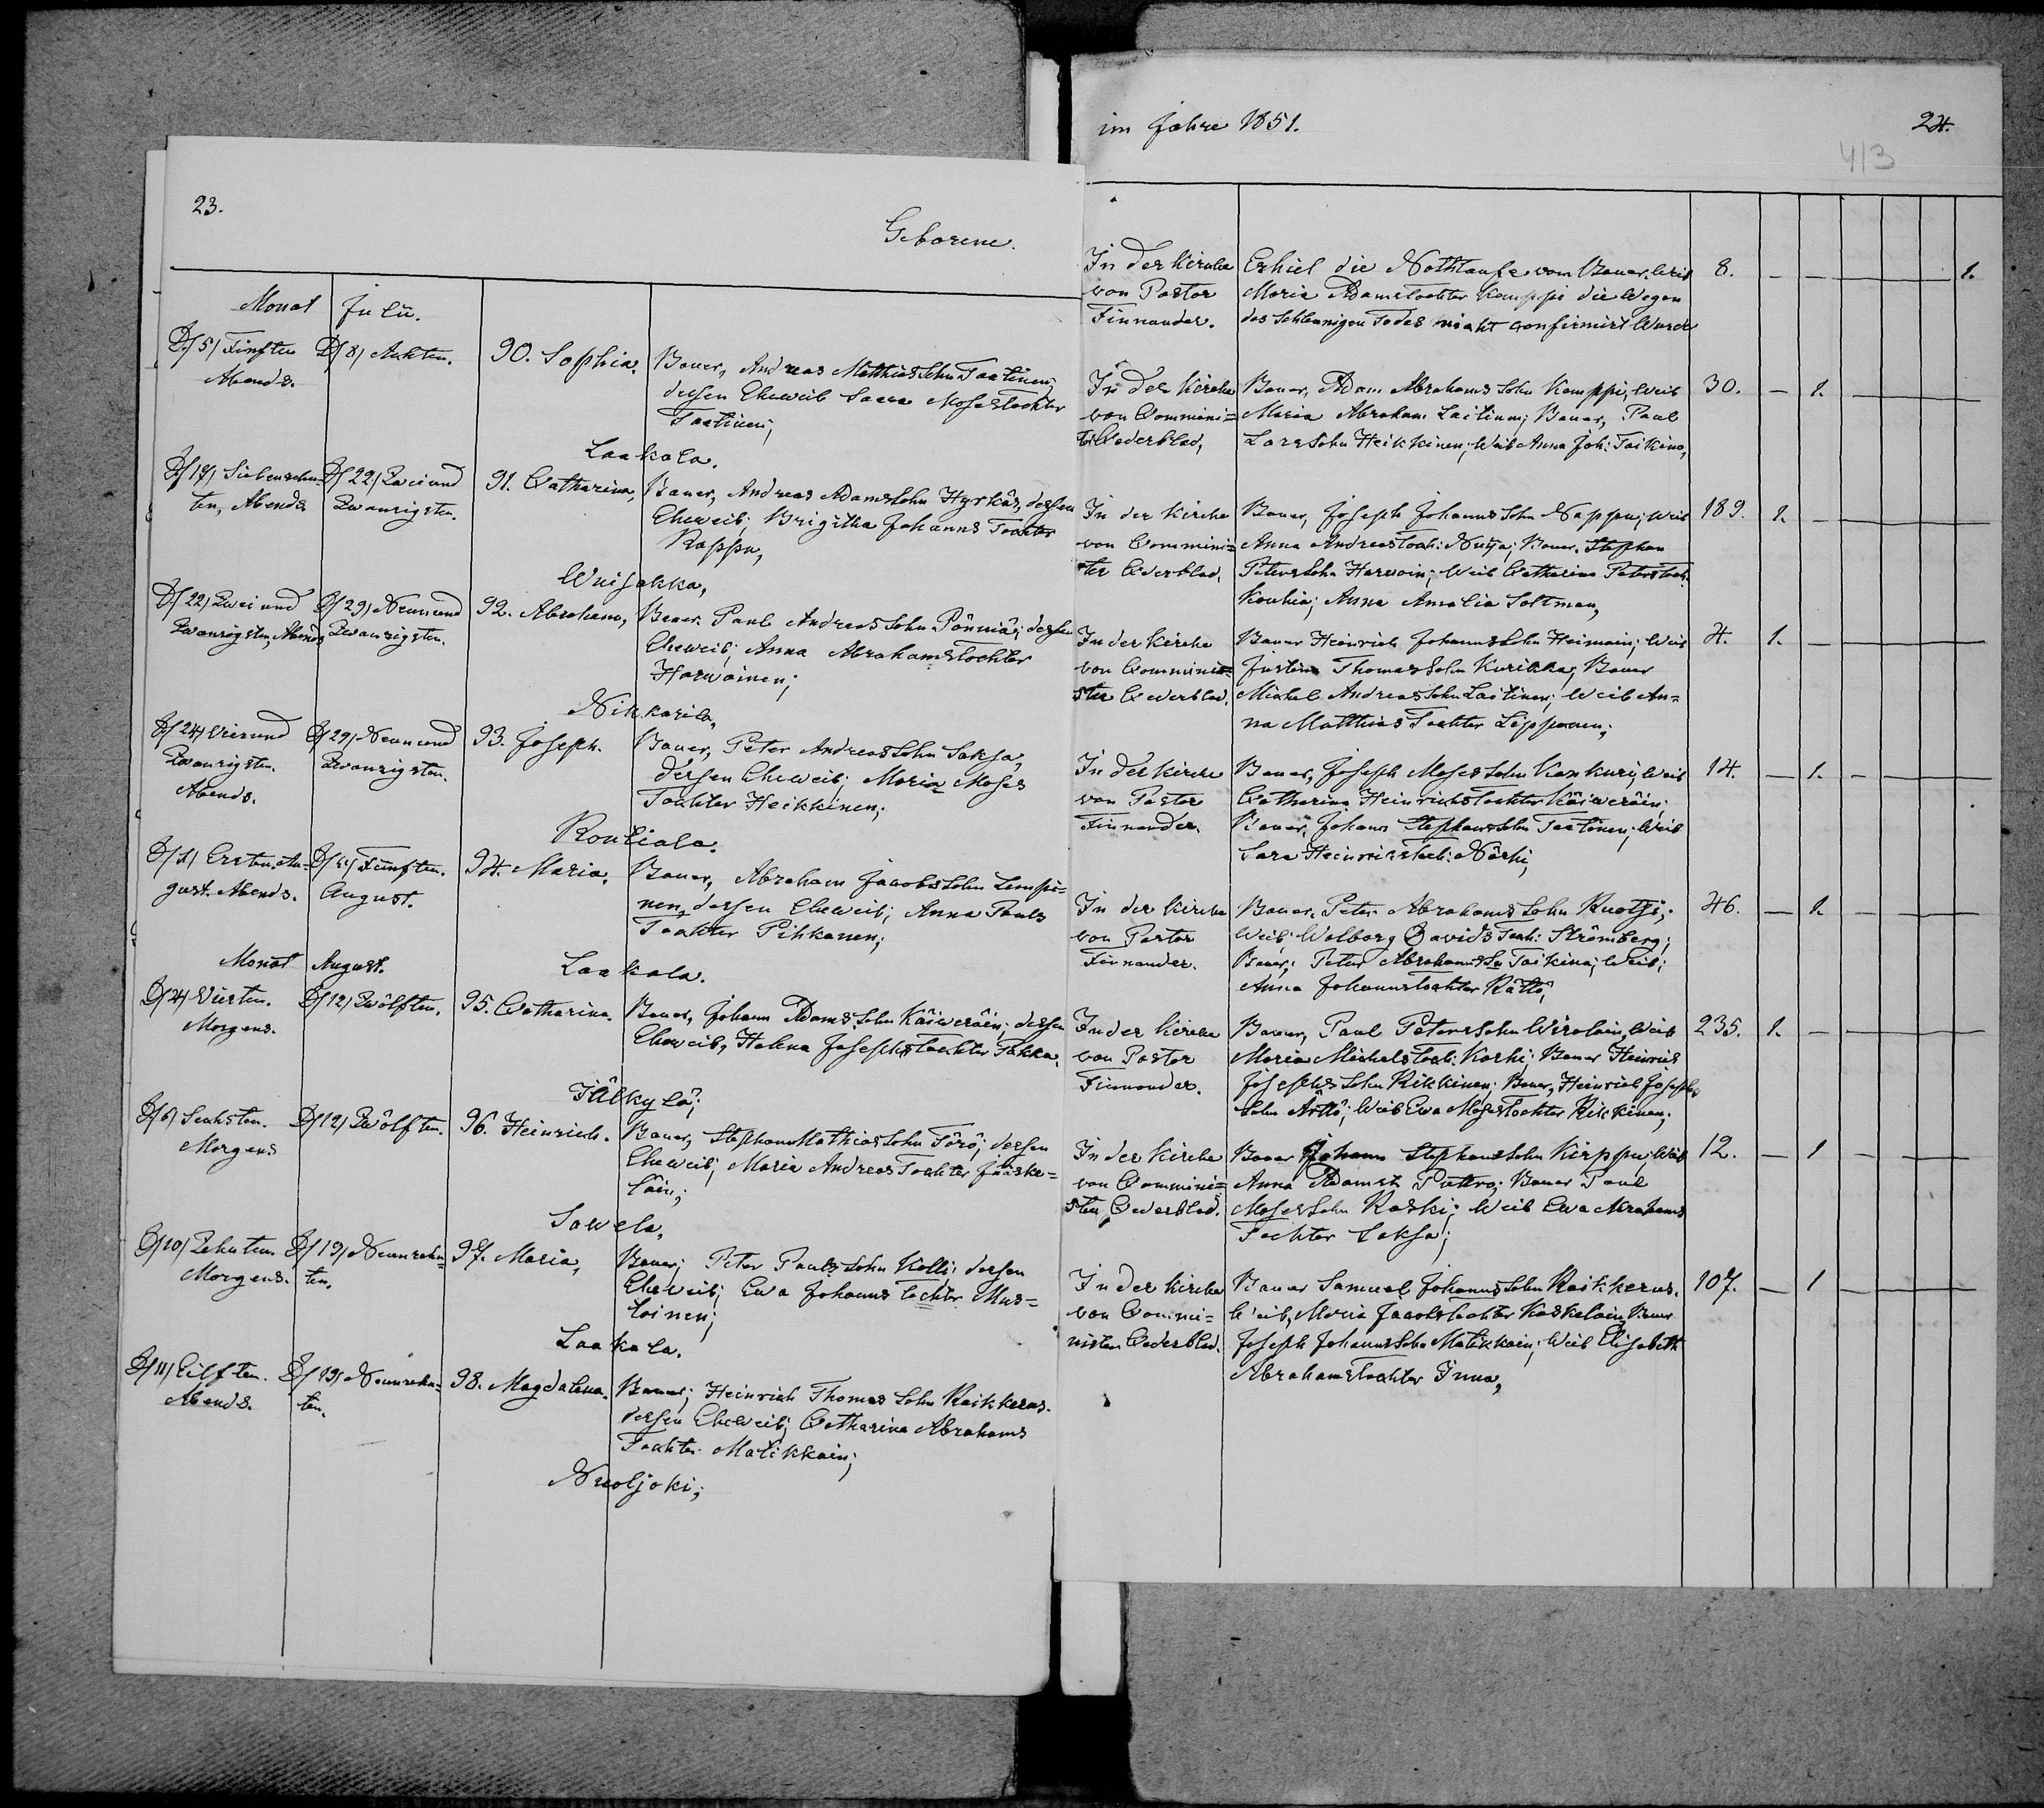 23.
Geborene.
Monat Julii.
D/5/ Fünften D/8/ Achten. 90. Sophia. Bauer, Andreas Matthias Sohn Taatinen,
Abends. dessen Eheweib Saara Moses Tochter
Taatinen;
Laakala.
D/17/ Siebenzehn- D/22/ Zwei und 91. Catharina, Bauer, Andreas Adams Sohn Hyrkäs, dessen
ten, Abends Zwanzigsten. Eheweib; Brigitta Johanns Tochter
Rappu,
Wuijakka,
D/22/ Zwei und D/29/ Neun und 92. Abraham, Bauer Paul Andreas Sohn Pönniä; dessen
Zwanzigsten, Abends Zwanzigsten. Eheweib; Anna Abrahams Tochter
Harwoinen;
Nikkarila,
D/24/ Vier und D/29/ Neun und 93. Joseph. Bauer, Peter Andreas Sohn Saksa,
Zwanzigsten. Zwanzigsten. dessen Eheweib; Maria Moses
Abends. Tochter Heikkinen;
Routiala.
D/1/ Ersten Au- D/5/ Fünften. 94. Maria. Bauer, Abraham Jacobs Sohn Lempi=
gust. Abends. August. nen, dessen Eheweib; Anna Pauls
Tochter Pihkanen;
Monat August. Laakala.
D/4/ Vierten. D/12/ Zwölften. 95. Catharina. Bauer, Johann Adams Sohn Käiweräin; dessen
Morgens. Eheweib, Helena Josephs Tochter Pakka,
Jälkylä;
D/6/ Sechsten. D/12/ Zwölften. 96. Heinrich. Bauer, Stephan Mathias Sohn Törö; dessen
Morgens Eheweib; Maria Andreas Tochter Jääske=
läin;
Sawela,
D/10/ Zehnten D/19/ Neunzehn= 97. Maria, Bauer; Peter Pauls Sohn Kolli dessen
Morgens. ten. Eheweib; Ewa Johanns Tochter Mus=
toinen;
Laakala.
D/11/ Eilften. D/19/ Neunzehn= 98. Magdalena. Bauer; Heinrich Thomas Sohn Raikkerus.
Abends. ten. dessen Eheweib; Catharina Abrahams
Tochter Matikkain;
Nuoljoki;
im Jahre 1851. 24.
413
In der Kirche Erhiel die Nothtaufe vom Bauer. Weib 8. 1.
von Pastor Maria Adams Tochter Kemppi die Wegen
Finnander. des Schleunigen Todes nicht confirmirt Wurde
In der Kirche Bauer, Adam Abrahams Sohn Kemppi, Weib 30. 1.
von Commini= Maria Abraham Laitinen; Bauer, Paul
Cederblad, Lars Sohn Heikkinen; Weib Anna Joh: Taikina,
In der Kirche Bauer, Joseph Johanns Sohn Nappu; Weib 189. 1.
von Commini= Anna Andreas Toch: Nuija; Bauer. Stephan
ster Cederblad, Peters Sohn Harwoin; Weib Catharina Peters Toch.
Kouhia; Anna Amalia Soltman,
In der Kirche Bauer Heinrich Johanns Sohn Heimain; Weib 4. 1.
von Commini= Justina Thomas Sohn Kurikka; Bauer
ster Cederblad. Michel Andreas Sohn Laitinen; Weib An=
na Matthias Tochter Lipponen;
In der Kirche Bauer, Joseph Moses Sohn Kankuri; Weib 14. 1.
von Pastor Catharina Heinrichs Tochter Käiweräin;
Finnander. Bauer, Johann Stephans Sohn Taatinen; Weib
Sara Heinrichs Toch: Närhi;
In der Kirche Bauer. Peter Abrahams Sohn Kuotti; 46. 1.
von Pastor Weib; Walborg Davids Toch: Strömberg;
Finnander. Bauer; Peter Abrahams Sn Taikina; Weib;
Anna Johanns Tochter Rättö;
In der Kirche Bauer, Paul Peters Sohn Wirolain, Weib 235. 1.
von Pastor Maria Michels Toch: Korhi; Bauer Heinrich
Finnander. Josephs Sohn Rikkinen; Bauer, Heinrich Josephs
Sohn Ärttö; Weib Ewa Moses Tochter Rikkinen;
In der Kirche Bauer Johann Stephans Sohn Kirppu; Weib 12. 1
von Commini= Anna Adams T. Puttro; Bauer Paul
ster Cederblad. Moses Sohn Raski; Weib Ewa Abrahams
Tochter Saksa;
In der Kirche Bauer Samuel Johanns Sohn Raikkerus. 107. 1
von Commi= Weib, Maria Jacobs Tochter Kaskelain, Bauer
nister Cederblad. Joseph Johanns Sohn Matikkain; Weib Elisabeth
Abrahams Tochter Inna,